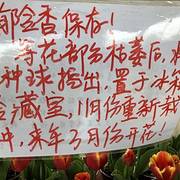 郁金香保存!
等花部份枯萎后,将
种球掘出,置于冰箱
冷藏室,11月份重新栽
种,来年3月份开花!